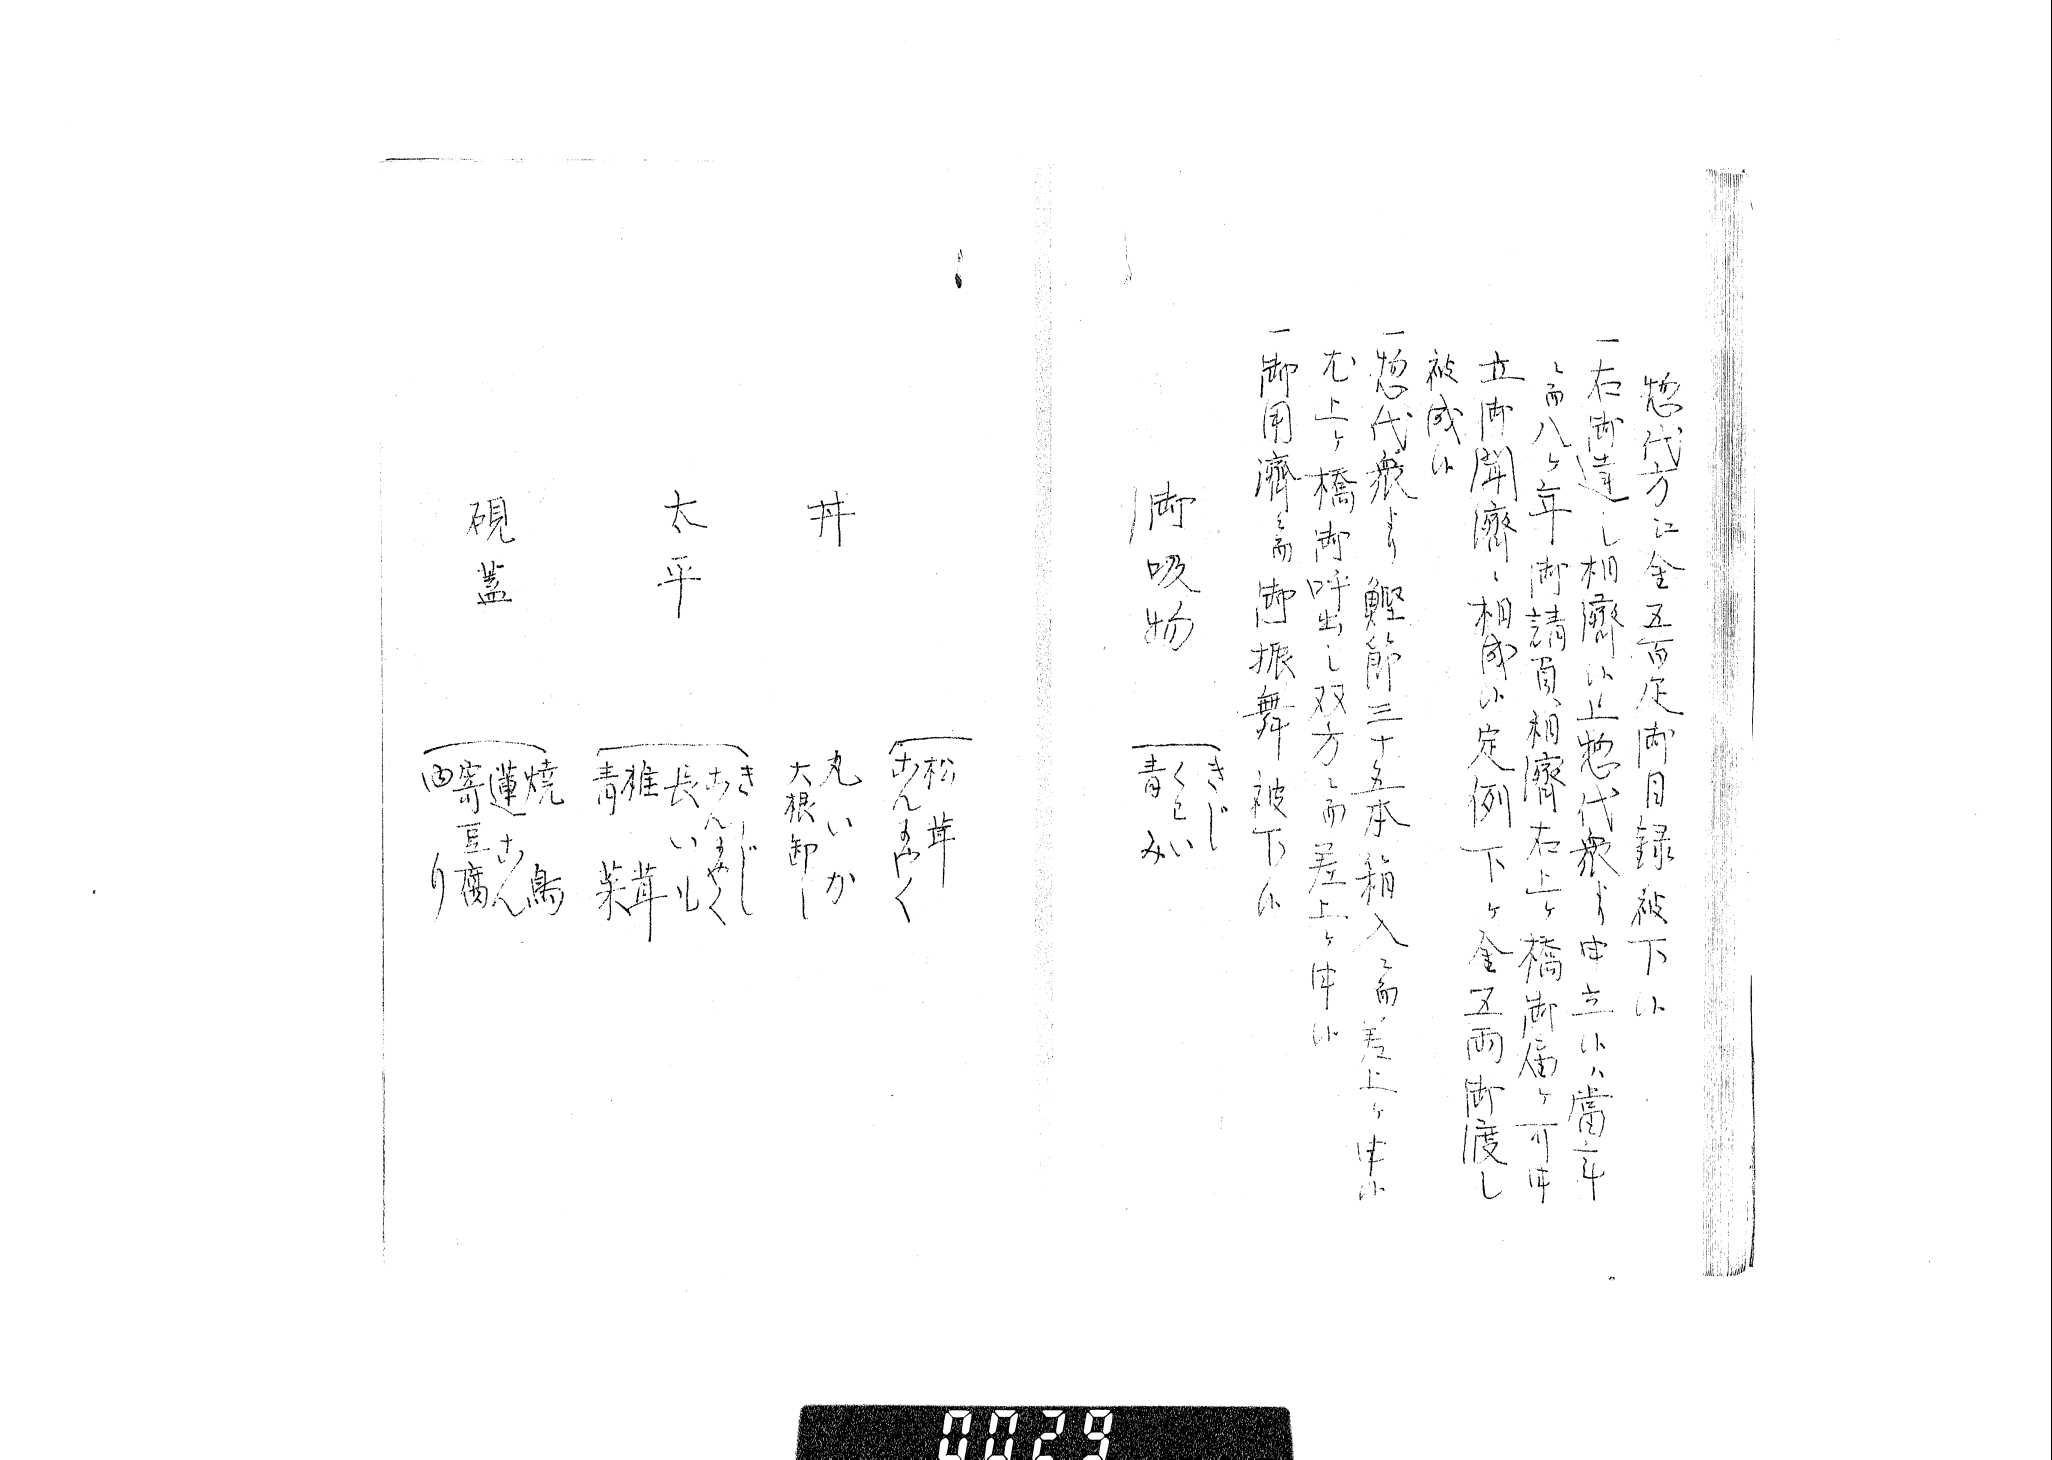 惣代方江金五百疋御目録被下候
一右御達し相済候上惣代衆より申立候ハ當年
ニ而八ヶ年御請負相濟右上ヶ橋御届ヶ可申
立御聞濟ニ相成候定例下ヶ金五両御渡し
被成候
一惣代衆より鰹節三十五本箱入ニ而差上ヶ申候
尤上ヶ橋御呼出し双方ニ而差上ヶ申候
一御用濟ニ而御振舞被下候
御吸物
きじ
くわい
青み
松茸
こんにやく
丼
丸いか
大根卸し
太平
きじ
こんにやく
長いも
椎茸
青菜
硯蓋
焼鳥
蓮こん
寄豆腐
り
0029